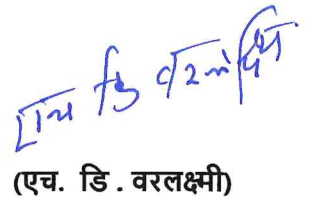 एच डि वरलक्ष्मी
(एच. डि . वरलक्ष्मी)